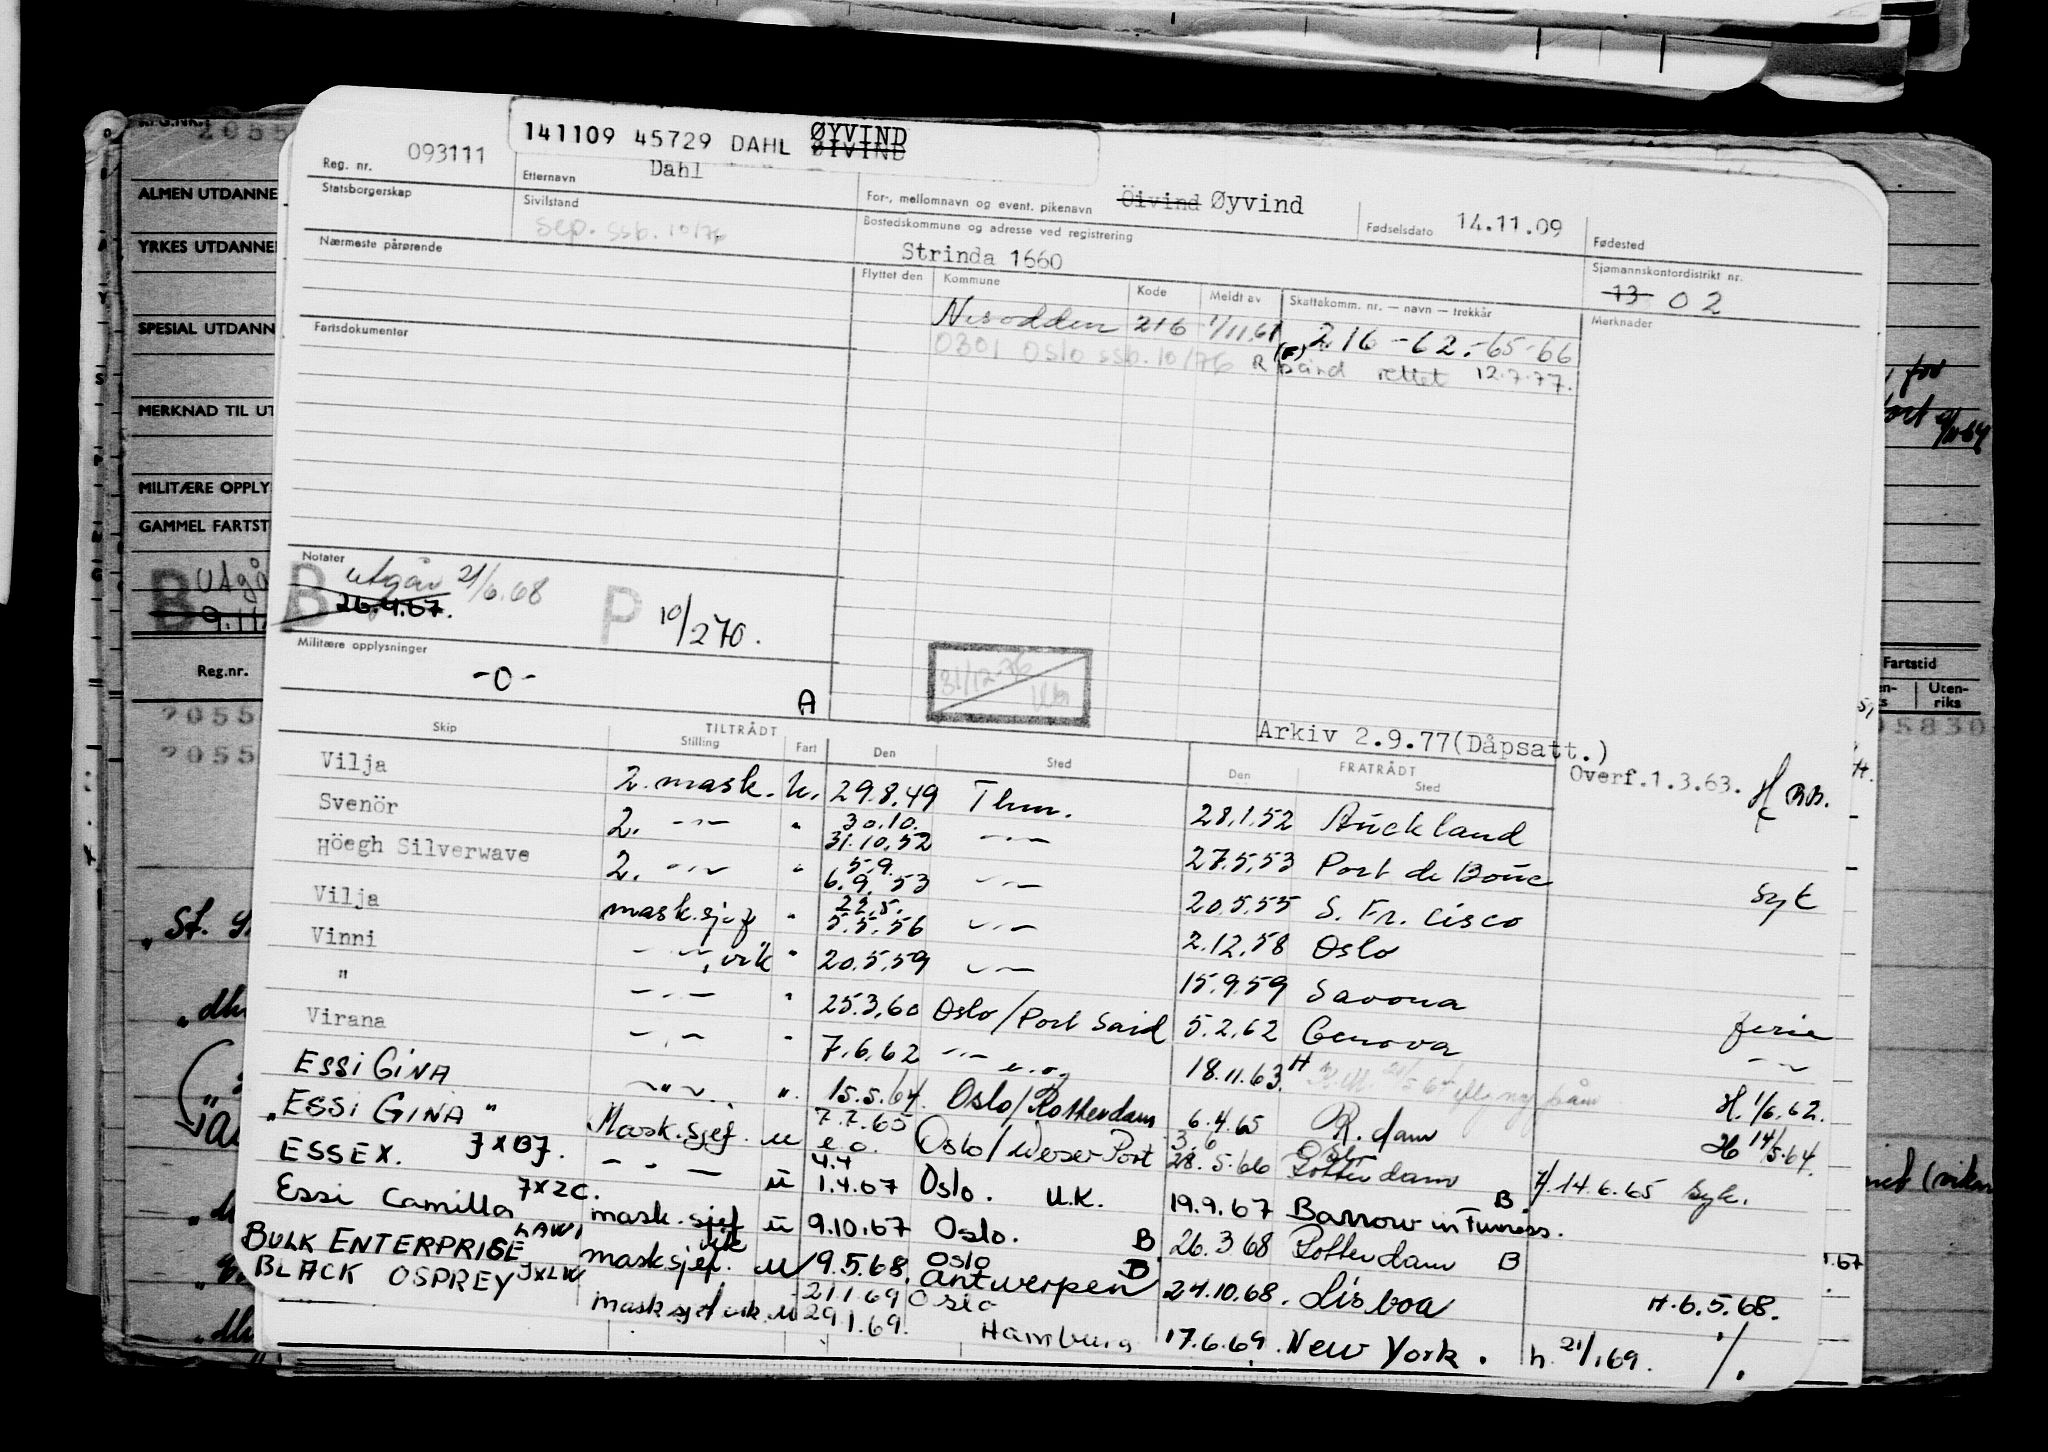 141109 45729 DAHL ØYVIND
ØIVIND
Reg. nr. 093111 Etternavn Dahl For-, mellomnavn og event. pikenavn Öivind Øyvind Fødselsdato 14.11.09 Fødested
Statsborgerskap Sivilstand sep. ssb. 10/76 Bostedskommune og adresse ved registrering Strinda 1660 Sjømannskontordistrikt nr. 13 02
Nærmeste pårørende Flyttet den Kommune Kode Meldt av Skattekomm. nr. — navn — trekkår Merknader
Nesodden 216 1/11.61 216 -62.-65-66
Fartsdokumenter 0301 Oslo ssb. 10/76 R (F) bånd rettet 12.7.77.
Notater
B utgår 21/6.68
26.4.67. P 10/270.
Militære opplysninger
-0- A
31/12-76
Arkiv 2.9.77(Dåpsatt.)
Skip TILTRÅDT Stilling Fart Den Sted FRATRÅDT Den Sted Overf.1.3.63.
Vilja 2. mask. u. 29.8.49 Thm. 28.1.52 Auckland
Svenör 2. -"- " 30.10. 31.10.52 -"- 27.5.53 Port de Bouc
Höegh Silverwave 2. -"- " 5.9. 6.9.53 -"- 20.5.55 S. Fr. cisco syk
Vilja mask.sjef " 22.5. 5.5.56 -"- 2.12.58 Oslo
Vinni -"-, vik " 20.5.59 -"- 15.9.59 Savona
" -"- " 25.3.60 Oslo/Port Said 5.2.62 Genova ferie
Virana -"- " 7.6.62 -"- e.o. 18.11.63. -"-
ESSI GINA -"- " 15.5.64. Oslo/Rotterdam 6.4.65 R.dam H.1/6.62.
"ESSI GINA" Mask.sjef. u 7.7.65 e.o. Oslo/Weser Port 3.6 28.5.66 Oslo Rotterdam H 14/5.64.
ESSEX. 7XB7. - " - u 4.4 1.4.67 Oslo. U.K. 19.9.67 Barrow in Furness. B 14.6.65 syk.
Essi Camilla 7X2C. mask.sjef u 9.10.67 Oslo. B 26.3.68 Rotterdam B
BULK ENTERPRISE LAWI masksjef. vik u 9.5.68. Oslo Antwerpen B 24.10.68. Lisboa H.6.5.68.
BLACK OSPREY JXLW masksjef vik. u 21.1.69 29.1.69. Oslo Hamburg 17.6.69. New York. h. 21/1.69.
REG.NR.
2055
ALMEN UTDANNE
YRKES UTDANNE
SPESIAL UTDANN
MERKNAD TIL UT
MILITÆRE OPPLY
GAMMEL FARTST
B Utgå
9.11.
Reg.nr.
2055
2055
Fartstid
Uten-
riks
05830